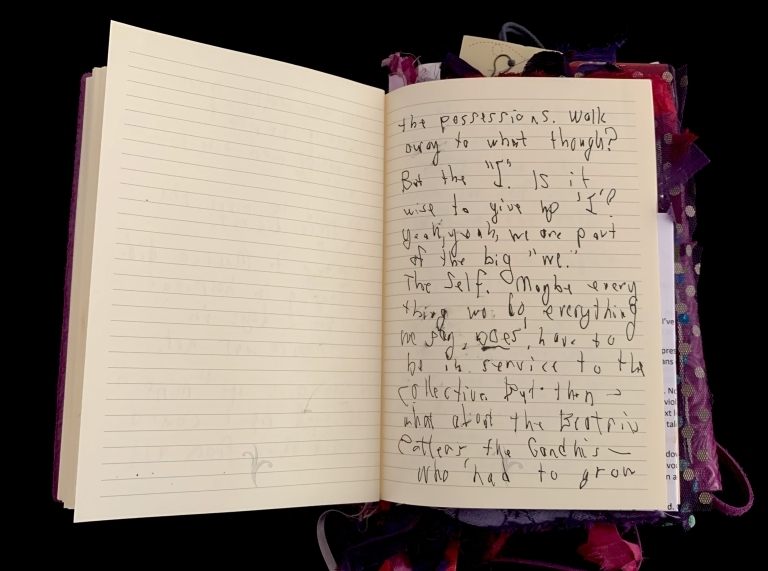 the possessions. Walk
away to what though?
But the "I". Is it
wise to give up "I"?
Yeah, yeah, we are part
of the big "we."
The Self. Maybe every
thing we do everything
we say, does, have to
be in service to the
collective. But then –
what about the Beatrix
the Gandhis –
who had to grow
I've